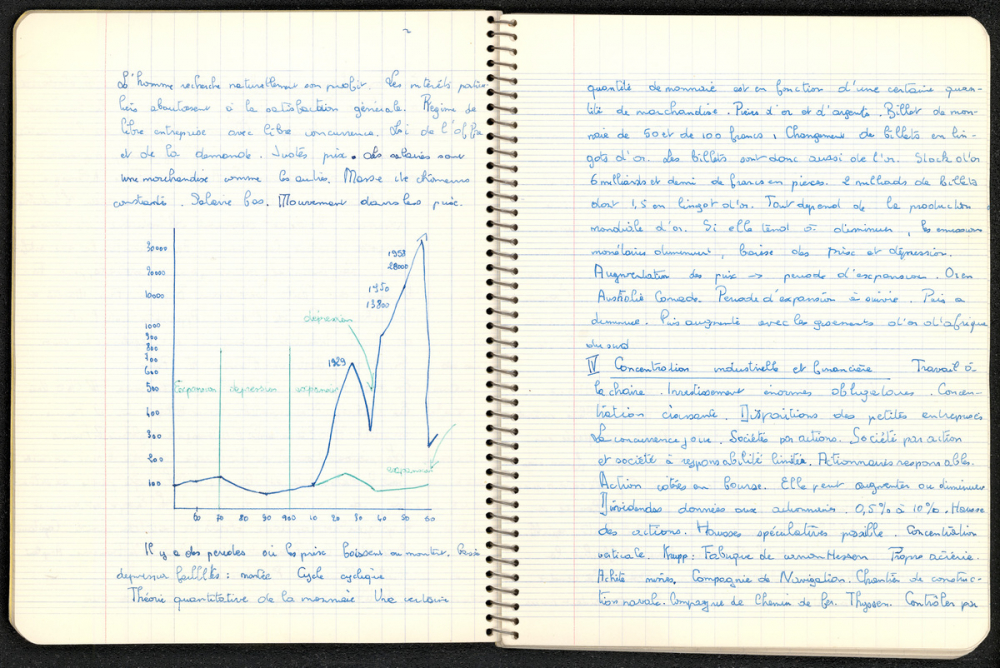 2
L'homme recherche naturellement son profit. Les intérêts particu-
liers aboutissent à la satisfaction générale. Régime de
libre entreprise avec libre concurrence. Loi de l'offre
et de la demande. Justes prix. Les salaires sont
une marchandise comme les autres. Masse de chômeurs
constante. Salaire bas. Mouvement dans les prix.
30000
20000
10000
1000
900
800
700
600
500
400
300
200
100
1958
28000
1950
13800
dépression
1929
expansion dépression expansion
expansion
60 70 80 90 900 10 20 30 40 50 60
Il y a des périodes où les prix baissent ou montent.
dépression faillites : montée Cycle cyclique
Théorie quantitative de la monnaie Une certaine
quantité de monnaie est en fonction d'une certaine quan-
tité de marchandise. Pièce d'or et d'argent. Billet de mon-
naie de 50 et de 100 francs. Changement de billets en lin-
gots d'or. Les billets sont donc aussi de l'or. Stock d'or
6 milliards et demi de francs en pièces. 2 milliards de billets
dont 1,5 en lingot d'or. Tout dépend de la production
mondiale d'or. Si elle tend à diminuer, les émissions
monétaire diminuent, baisse des prix et dépression.
Augmentation des prix → période d'expansion. Or en
Australie Canada. Période d'expansion à suivie. Puis a
diminué. Puis augmenté avec les gisements d'or d'afrique
du sud
IV Concentration industrielle et financière Travail à
la chaîne. Investissement énormes obligatoires. Concen-
tration croissante. Disparitions des petites entreprises
La concurrence joue. Sociétés par actions. Société par action
et société à responsabilité limitée. Actionnaires responsables.
Action cotées en bourse. Elle peut augmenter ou diminuer
Dividendes données aux actionnaires. 0,5% à 10%. Hausse
des actions. Hausses spéculatives possible. Concentration
verticale. Krupp : Fabrique de canon Propre aciérie.
Achète mines. Compagnie de Navigation. Chantier de construc-
tion navale. Compagnie de Chemin de fer. Thyssen. Contrôler par